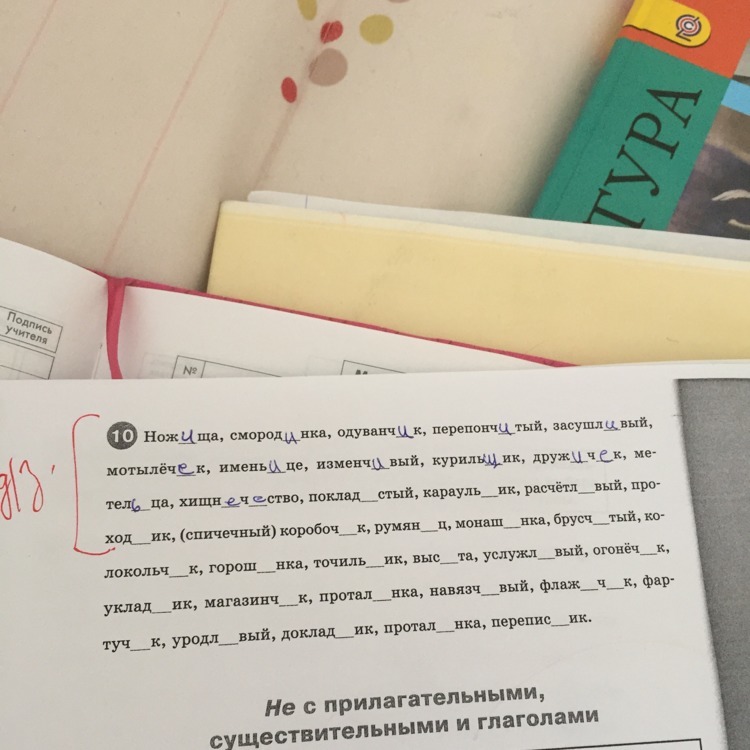 ТУРА
Подпись
учителя
№
д/з.
10 Ножища, смородинка, одуванчик, перепончитый, засушливый,
мотылёчек, именьице, изменчивый, курильщик, дружичек, ме-
тельца, хищнечество, поклад__стый, карауль__ик, расчётл__вый, про-
ход__ик, (спичечный) коробоч__к, румян__ц, монаш__нка, брусч__тый, ко-
локольч__к, горош__нка, точиль__ик, выс__та, услужл__вый, огонёч__к,
уклад__ик, магазинч__к, протал__нка, навязч__вый, флаж__ч__к, фар-
туч__к, уродл__вый, доклад__ик, протал__нка, перепис__ик.
Не с прилагательными,
существительными и глаголами